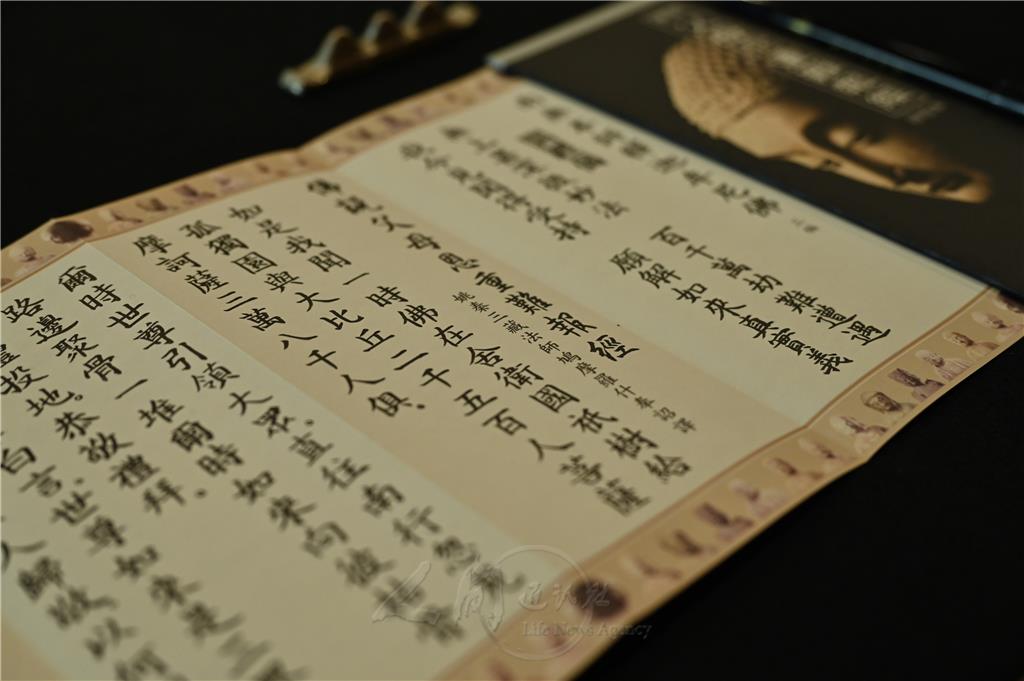 釋迦牟尼佛 三稱
無上甚深微妙法 百千萬劫難遭遇
我今見聞得受持 願解如來真實義
佛說父母恩重難報經
姚秦三藏法師鳩摩羅什奉詔譯
如是我聞一時佛在舍衛國祇樹給
孤獨園與大比丘二千五百人菩薩
摩訶薩三萬八千人俱、
爾時世尊引領大眾、直往南行忽見
路邊聚骨一堆爾時、如來向彼枯骨
體投地。恭敬禮拜、
白言、世尊如來是三界
人歸敬以何
人間通訊社
Life News Agency